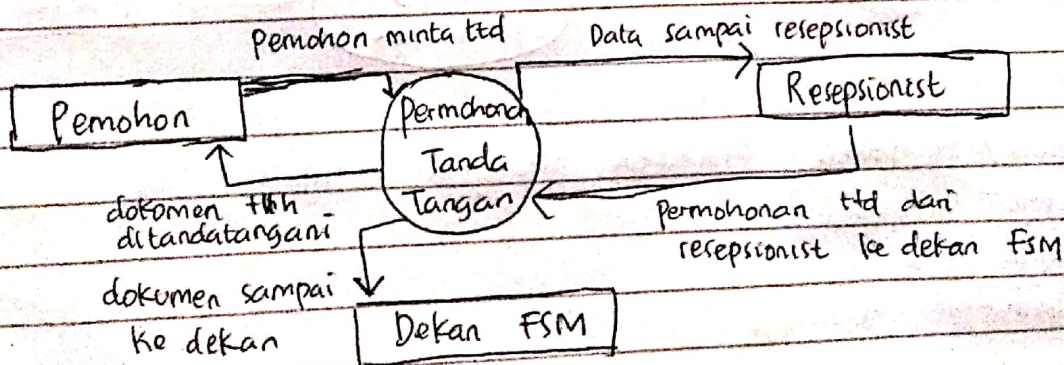 Pemohon minta ttd
Data sampai resepsionist
Pemohon
Permohonan
Tanda
Tangan
Resepsionist
dokumen tlh
ditandatangani
permohonan ttd dari
resepsionist ke dekan FSM
dokumen sampai
ke dekan
Dekan FSM